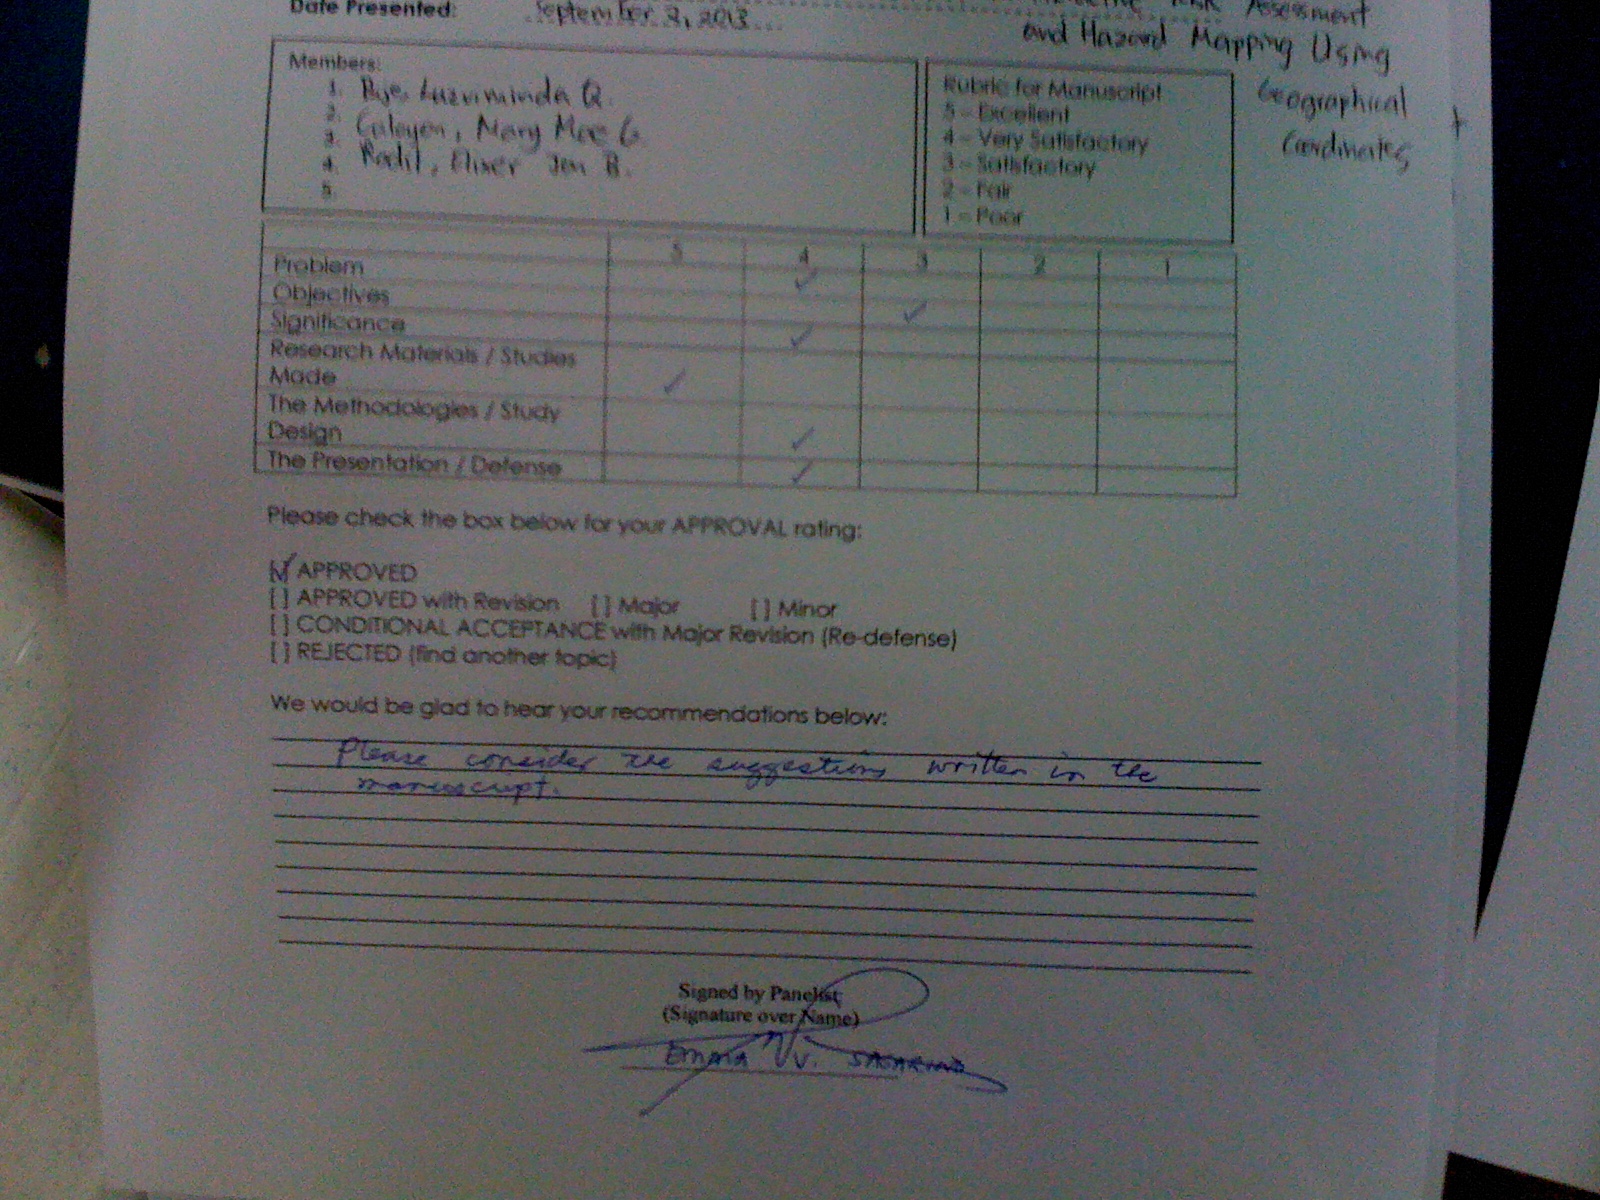 Risk Assessment
Date Presented: September 2, 2013
and Hazard Mapping Using
Geographical
Coordinates
Members:
1. Luzviminda Q.
2. Caloyon, Mary Mae G.
3. Rodil, Elixer Jen B.
4.
5.
Rubric for Manuscript
5 – Excellent
4 – Very Satisfactory
3 – Satisfactory
2 – Fair
1 – Poor
5 4 3 2 1
Problem ✓
Objectives ✓
Significance ✓
Research Materials / Studies
Made ✓
The Methodologies / Study
Design ✓
The Presentation / Defense ✓
Please check the box below for your APPROVAL rating:
[✓] APPROVED
[ ] APPROVED with Revision [ ] Major [ ] Minor
[ ] CONDITIONAL ACCEPTANCE with Major Revision (Re-defense)
[ ] REJECTED (find another topic)
We would be glad to hear your recommendations below:
Please consider the suggestions written in the
manuscript.
Signed by Panelist
(Signature over Name)
EMMA V.